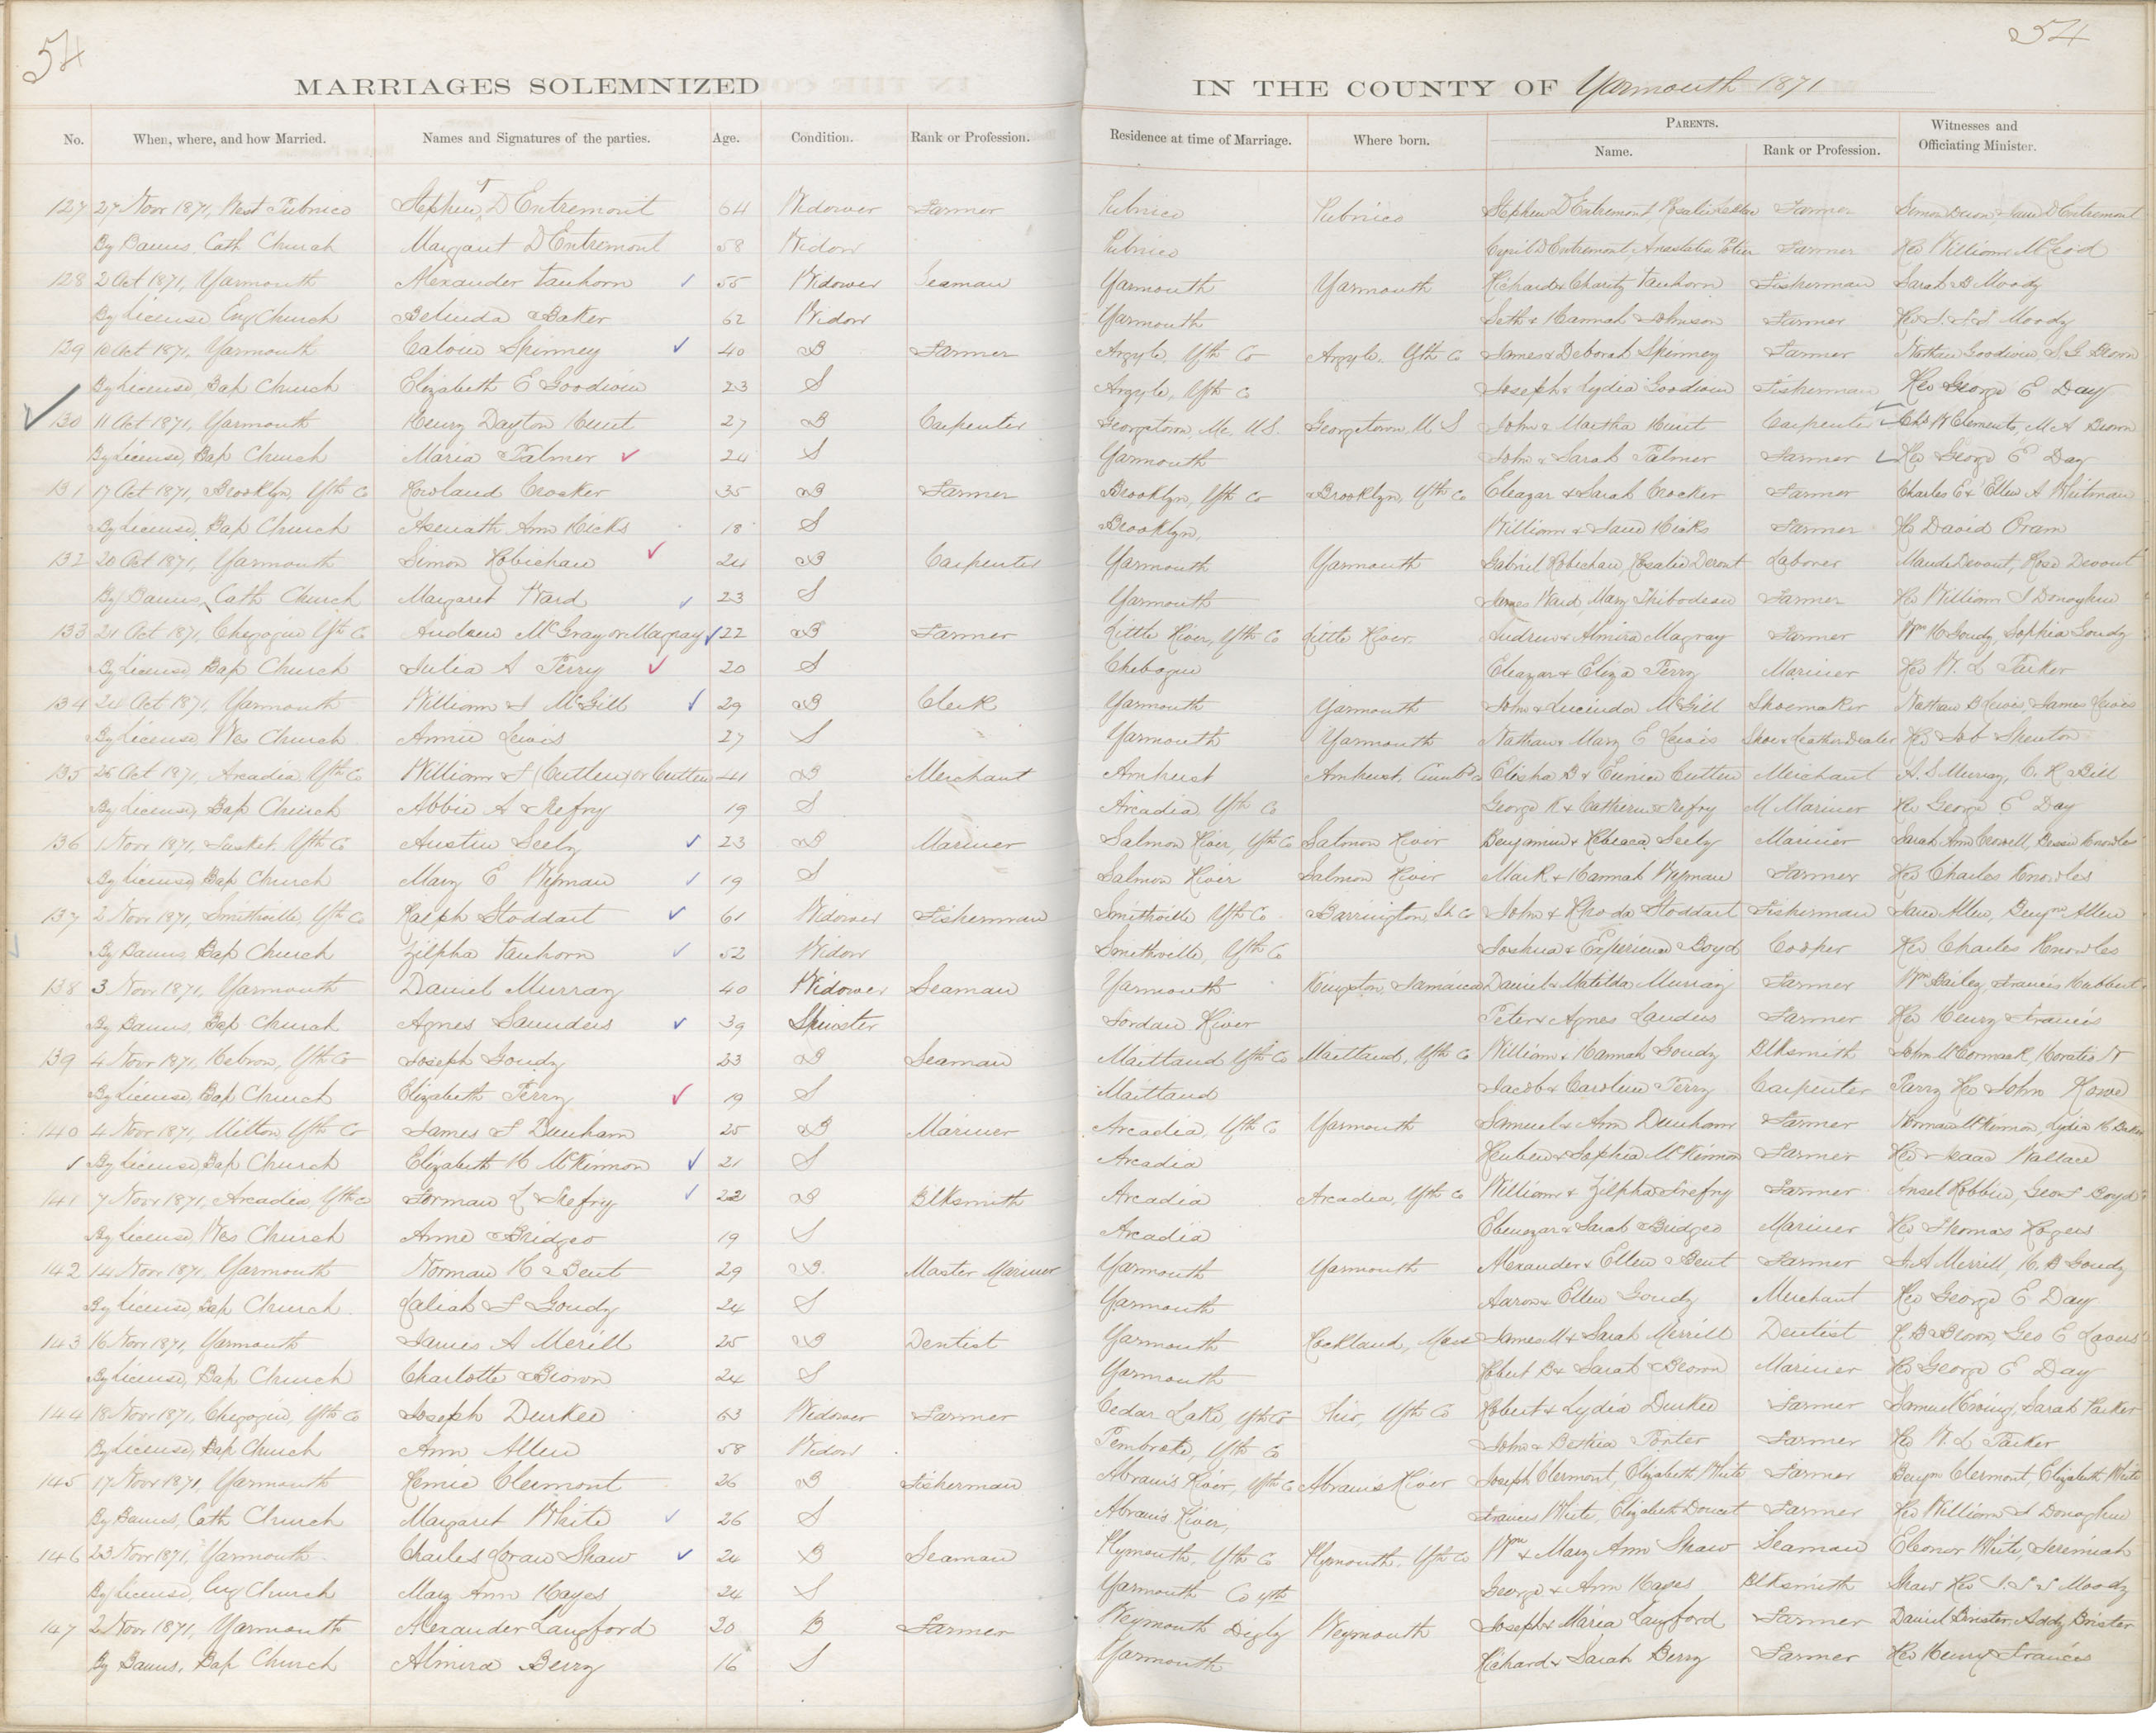 54
54
MARRIAGES SOLEMNIZED IN THE COUNTY OF Yarmouth 1871
No. When, where, and how Married. Names and Signatures of the parties. Age. Condition. Rank or Profession. Residence at time of Marriage. Where born. PARENTS. Name. Rank or Profession. Witnesses and Officiating Minister.
127 27 Novr 1871, West Pubnico Stephen D Entremont 64 Widower Farmer Pubnico Pubnico Stephen D Entremont Farmer
By Banns Cath Church Margaret D Entremont 58 Widow Pubnico Cyril D Entremont Farmer Rev William McLeod
128 2 Oct 1871, Yarmouth Alexander Vanhorn 55 Widower Seaman Yarmouth Yarmouth Richard & Charity Vanhorn Fisherman Sarah B Moody
By License Eng Church Belinda Baker 62 Widow Yarmouth Seth & Hannah Johnson Farmer Rev J. T. T. Moody
129 10 Oct 1871, Yarmouth Calvin Spinney 40 B Farmer Argyle, Yth Co Argyle, Yth Co James & Deborah Spinney Farmer Nathan Goodwin, S. G. Brown
By License Bap Church Elizabeth E Goodwin 23 S Argyle, Yth Co Joseph & Lydia Goodwin Fisherman Rev George E Day
130 11 Oct 1871, Yarmouth Henry Dayton Hunt 27 B Carpenter Georgetown, Me, U.S. Georgetown, U S John & Martha Hunt Carpenter Chs W Clements, M A Brown
By License, Bap Church Maria Palmer 24 S Yarmouth John & Sarah Palmer Farmer Rev George E Day
131 17 Oct 1871, Brooklyn, Yth Co Rowland Crosker 35 B Farmer Brooklyn, Yth Co Brooklyn, Yth Co Eleazar & Sarah Crocker Farmer Charles E & Ellen A Whitman
By License, Bap Church Asenath Ann Hicks 18 S Brooklyn, William & Jane Hicks Farmer Rev David Oram
132 20 Oct 1871, Yarmouth Simon Robichau 24 B Carpenter Yarmouth Yarmouth Gabriel Robichau, Rosalie Laborer Maude Devout, Rose Devout
By Banns, Cath Church Margaret Ward 23 S Yarmouth James Ward, Mary Thibodeau Farmer Rev William J Donaghue
133 21 Oct 1871, Chegogin Yth Co Andrew McGray or Magray 22 B Farmer Little River, Yth Co Little River Andrew & Almira Magray Farmer Wm H Goudy, Sophia Goudy
By License Bap Church Julia A Perry 20 S Chebogue Eleazar & Eliza Perry Mariner Rev W. L Parker
134 24 Oct 1871, Yarmouth William J McGill 29 B Clerk Yarmouth Yarmouth John & Lucinda McGill Shoemaker Nathan B Lewis, James Lewis
By License Wes Church Annie Lewis 27 S Yarmouth Yarmouth Nathan & Mary E Lewis Shoe & Leather Dealer Rev Job Shenton
135 26 Oct 1871, Arcadia, Yth Co William T (Cutten) or Cutten 41 B Merchant Amherst Amherst, Cumbd Co Elisha B & Eunice Cutten Merchant A. S Murray, C. R Bill
By License, Bap Church Abbie A Trefry 19 S Arcadia, Yth Co George K & Catherine Trefry M Mariner Rev George E Day
136 1 Novr 1871, Tusket, Yth Co Austin Seely 23 B Mariner Salmon River, Yth Co Salmon River Benjamin & Rebecca Seely Mariner Sarah Ann Crowell, Bessie Knowles
By License, Bap Church Mary E Wyman 19 S Salmon River Salmon River Mark & Hannah Wyman Farmer Rev Charles Knowles
137 2 Novr 1871, Smithville, Yth Co Ralph Stoddart 61 Widower Fisherman Smithville, Yth Co Barrington, Sh Co John & Rhoda Stoddart Fisherman Jane Allen, Benjn Allen
By Banns, Bap Church Zilpha Vanhorn 52 Widow Smithville, Yth Co Joshua & Experience Boyd Cooper Rev Charles Knowles
138 3 Novr 1871, Yarmouth Daniel Murray 40 Widower Seaman Yarmouth Kingston, Jamaica Daniel & Matilda Murray Farmer Wm Bailey, Francis Hubbert
By Banns, Bap Church Agnes Saunders 39 Spinster Jordan River Peter & Agnes Landers Farmer Rev Henry Francis
139 4 Novr 1871, Hebron, Yth Co Joseph Goudy 23 B Seaman Maitland Yth Co Maitland, Yth Co William & Hannah Goudy Blksmith John McCormack, Horatio N
By License, Bap Church Elizabeth Perry 19 S Maitland Jacob & Caroline Perry Carpenter Parry Rev John Rowe
140 4 Novr 1871, Milton, Yth Co James F Dunham 25 B Mariner Arcadia, Yth Co Yarmouth Samuel & Ann Dunham Farmer Norman McKinnon, Lydia H Baker
By License, Bap Church Elizabeth H McKinnon 21 S Arcadia Reuben & Sophia McKinnon Farmer Rev Isaac Wallace
141 7 Novr 1871, Arcadia, Yth Co Forman L Trefry 22 B Blksmith Arcadia Arcadia, Yth Co William & Zilpha Trefry Farmer Ansel Robbins, Geo F Boyd
By License, Wes Church Anne Bridgeo 19 S Arcadia Ebenezar & Sarah Bridgeo Mariner Rev Thomas Rogers
142 14 Novr 1871, Yarmouth Norman H Bent 29 B Master Mariner Yarmouth Yarmouth Alexander & Ellen Bent Farmer J. A Merrill, H. B Goudy
By License, Bap Church Zaliah F Goudy 24 S Yarmouth Aaron & Ellen Goudy Merchant Rev George E Day
143 16 Novr 1871, Yarmouth James A Merill 25 B Dentist Yarmouth Rockland, Mass James M & Sarah Merrill Dentist R. B Brown, Geo E Lavers
By License, Bap Church Charlotte Brown 24 S Yarmouth Robert B & Sarah Brown Mariner Rev George E Day
144 18 Novr 1871, Chegogin, Yth Co Joseph Durkee 63 Widower Farmer Cedar Lake, Yth Co Ohio, Yth Co Robert & Lydia Durkee Farmer Samuel Ewing, Sarah Parker
By License, Bap Church Ann Allen 58 Widow Pembroke, Yth Co John & Bethia Porter Farmer Rev W. L Parker
145 17 Novr 1871, Yarmouth Remie Clermont 26 B Fisherman Abrams River, Yth Co Abrams River Joseph Clermont, Elizabeth White Farmer Benjn Clermont, Elizabeth White
By Banns, Cath Church Margaret White 26 S Abrams River, Francis White, Elizabeth Doucet Farmer Rev William J Donaghue
146 23 Novr 1871, Yarmouth Charles Loran Shaw 24 B Seaman Plymouth, Yth Co Plymouth, Yth Co Wm & Mary Ann Shaw Seaman Elenor White, Jeremiah
By License, Eng Church Mary Ann Hayes 24 S Yarmouth Co Yth George & Ann Hayes Blksmith Shaw Rev J. T. T Moody
147 2 Novr 1871, Yarmouth Alexander Langford 20 B Farmer Weymouth Digby Weymouth Joseph & Maria Langford Farmer Daniel Brister, Addy Brister
By Banns, Bap Church Almira Berry 16 S Yarmouth Richard & Sarah Berry Farmer Rev Henry Francis